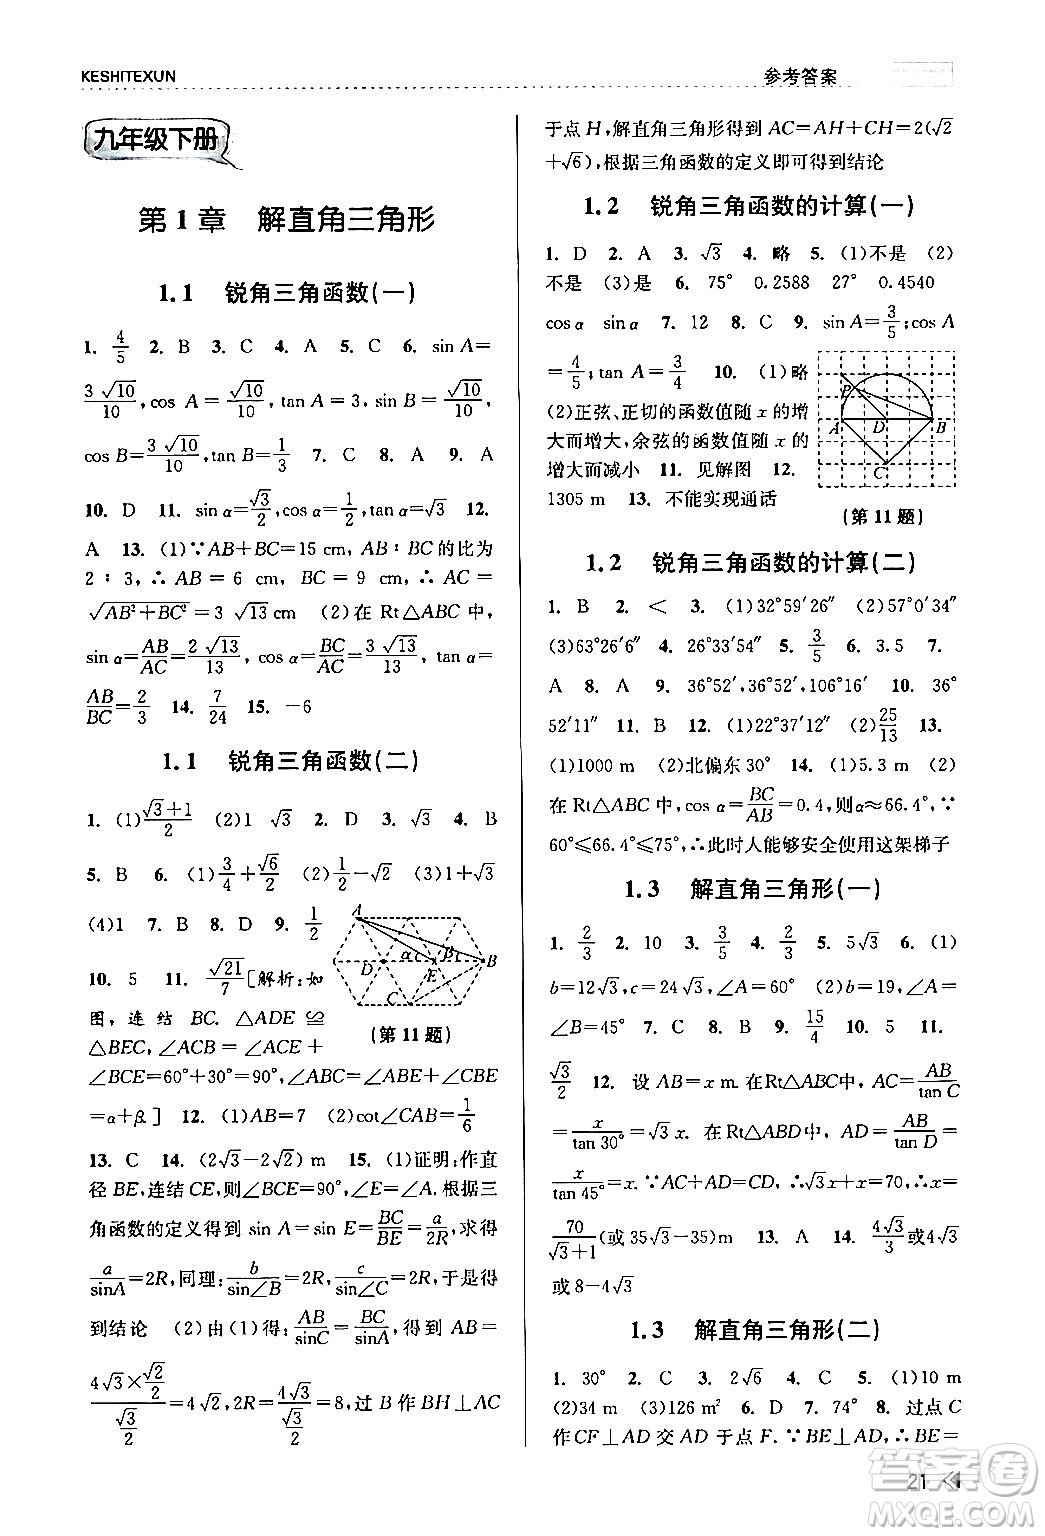 KESHITEXUN
参考答案
九年级下册
第 1 章 解直角三角形
1.1 锐角三角函数(一)
1. 4/5 2. B 3. C 4. A 5. C 6. sin A=
3√10/10, cos A=√10/10, tan A=3, sin B=√10/10,
cos B=3√10/10, tan B=1/3 7. C 8. A 9. A
10. D 11. sin α=√3/2, cos α=1/2, tan α=√3 12.
A 13. (1)∵AB+BC=15 cm, AB∶BC的比为
2∶3,∴AB=6 cm, BC=9 cm,∴AC=
√AB²+BC²=3√13 cm (2)在 Rt△ABC 中,
sin α=AB/AC=2√13/13, cos α=BC/AC=3√13/13, tan α=
AB/BC=2/3 14. 7/24 15. −6
1.1 锐角三角函数(二)
1. (1)√3+1/2 (2)1 √3 2. D 3. √3 4. B
5. B 6. (1)3/4+√6/2 (2)1/2−√2 (3)1+√2
(4)1 7. B 8. D 9. 1/2
10. 5 11. √21/7[解析:如
图,连结 BC. △ADE≌
△BEC,∠ACB=∠ACE+
∠BCE=60°+30°=90°,∠ABC=∠ABE+∠CBE
=α+β.] 12. (1)AB=7 (2)cot∠CAB=1/6
A
D α E β B
C
(第 11 题)
13. C 14. (2√3−2√2) m 15. (1)证明:作直
径 BE,连结 CE,则∠BCE=90°,∠E=∠A. 根据三
角函数的定义得到 sin A=sin E=BC/BE=a/2R,求得
a/sinA=2R,同理:b/sin∠B=2R,c/sin∠C=2R,于是得
到结论 (2)由(1)得:AB/sinC=BC/sinA,∴AB=
4√3×√2/2/√3/2=4√2,2R=4√3/√3/2=8,过 B 作 BH⊥AC
于点 H,解直角三角形得到 AC=AH+CH=2(√2
+√6),根据三角函数的定义即可得到结论
1.2 锐角三角函数的计算(一)
1. D 2. A 3. √3 4. 略 5. (1)不是 (2)
不是 (3)是 6. 75° 0.2588 27° 0.4540
cos α sin α 7. 12 8. C 9. sin A=3/5;cos A
=4/5;tan A=3/4 10. (1)略
(2)正弦、正切的函数值随 x 的增
大而增大,余弦的函数值随 x 的
增大而减小 11. 见解图 12.
1305 m 13. 不能实现通话
P
A D B
C
(第 11 题)
1.2 锐角三角函数的计算(二)
1. B 2. < 3. (1)32°59′26″ (2)57°0′34″
(3)63°26′6″ 4. 26°33′54″ 5. 3/5 6. 3.5 7.
A 8. A 9. 36°52′,36°52′,106°16′ 10. 36°
52′11″ 11. B 12. (1)22°37′12″ (2)25/13 13.
(1)1000 m (2)北偏东 30° 14. (1)5.3 m (2)
在 Rt△ABC 中,cos α=BC/AB=0.4,则α≈66.4°,∵
60°≤66.4°≤75°,∴此时人能够安全使用这架梯子
1.3 解直角三角形(一)
1. 2/3 2. 10 3. 3/5 4. 2/3 5. 5√3 6. (1)
b=12√3,c=24√3,∠A=60° (2)b=19,∠A=
∠B=45° 7. C 8. B 9. 15/4 10. 5 11.
√3/2 12. 设 AB=x m. 在Rt△ABC中,AC=AB/tan C
=x/tan 30°=√3x. 在 Rt△ABD 中,AD=AB/tan D=
x/tan 45°=x.∵AC+AD=CD,∴√3x+x=70,x=
70/√3+1(或 35√3−35)m 13. A 14. 4√3/3或4√3
或 8−4√3
1.3 解直角三角形(二)
1. 30° 2. C 3. 2√6 4. C 5. (1)10 m
(2)34 m (3)126 m² 6. D 7. 74° 8. 过点 C
作 CF⊥AD 交 AD 于点 F.∵BE⊥AD,∴BE=
21
答案圈
MXQE.COM